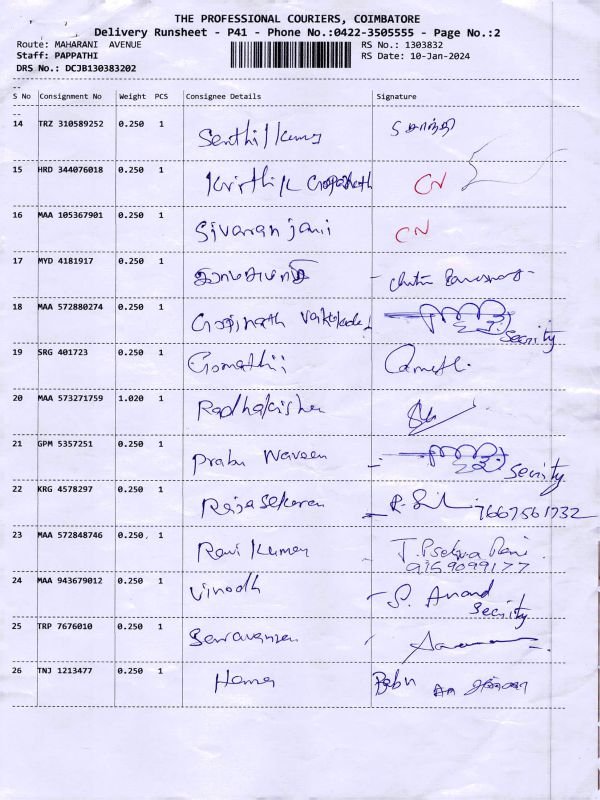 THE PROFESSIONAL COURIERS, COIMBATORE
Delivery Runsheet - P41 - Phone No.:0422-3505555 - Page No.:2
Route: MAHARANI AVENUE RS No.: 1303832
Staff: PAPPATHI RS Date: 10-Jan-2024
DRS No.: DCJB130383202
--
S No Consignment No Weight PCS Consignee Details Signature
--
14 TRZ 310589252 0.250 1 Senthil Kumar
15 HRD 344076018 0.250 1 Krithik CN
16 MAA 105367901 0.250 1 Sivaranjani CN
17 MYD 4181917 0.250 1
18 MAA 572880274 0.250 1 Gopinath
Secrity
19 SRG 401723 0.250 1 Gomathi
20 MAA 573271759 1.020 1 Radhakishen
21 GPM 5357251 0.250 1 Prabu Naveen Secrity
22 KRG 4578297 0.250 1 Rajasekaran 7667561732
23 MAA 572848746 0.250 1 Ravi Kumar J. P Selva Rani
9159099177
24 MAA 943679012 0.250 1 Vinodh S. Anand
Secrity
25 TRP 7676010 0.250 1 Saravanan
26 TNJ 1213477 0.250 1 Hema Babu